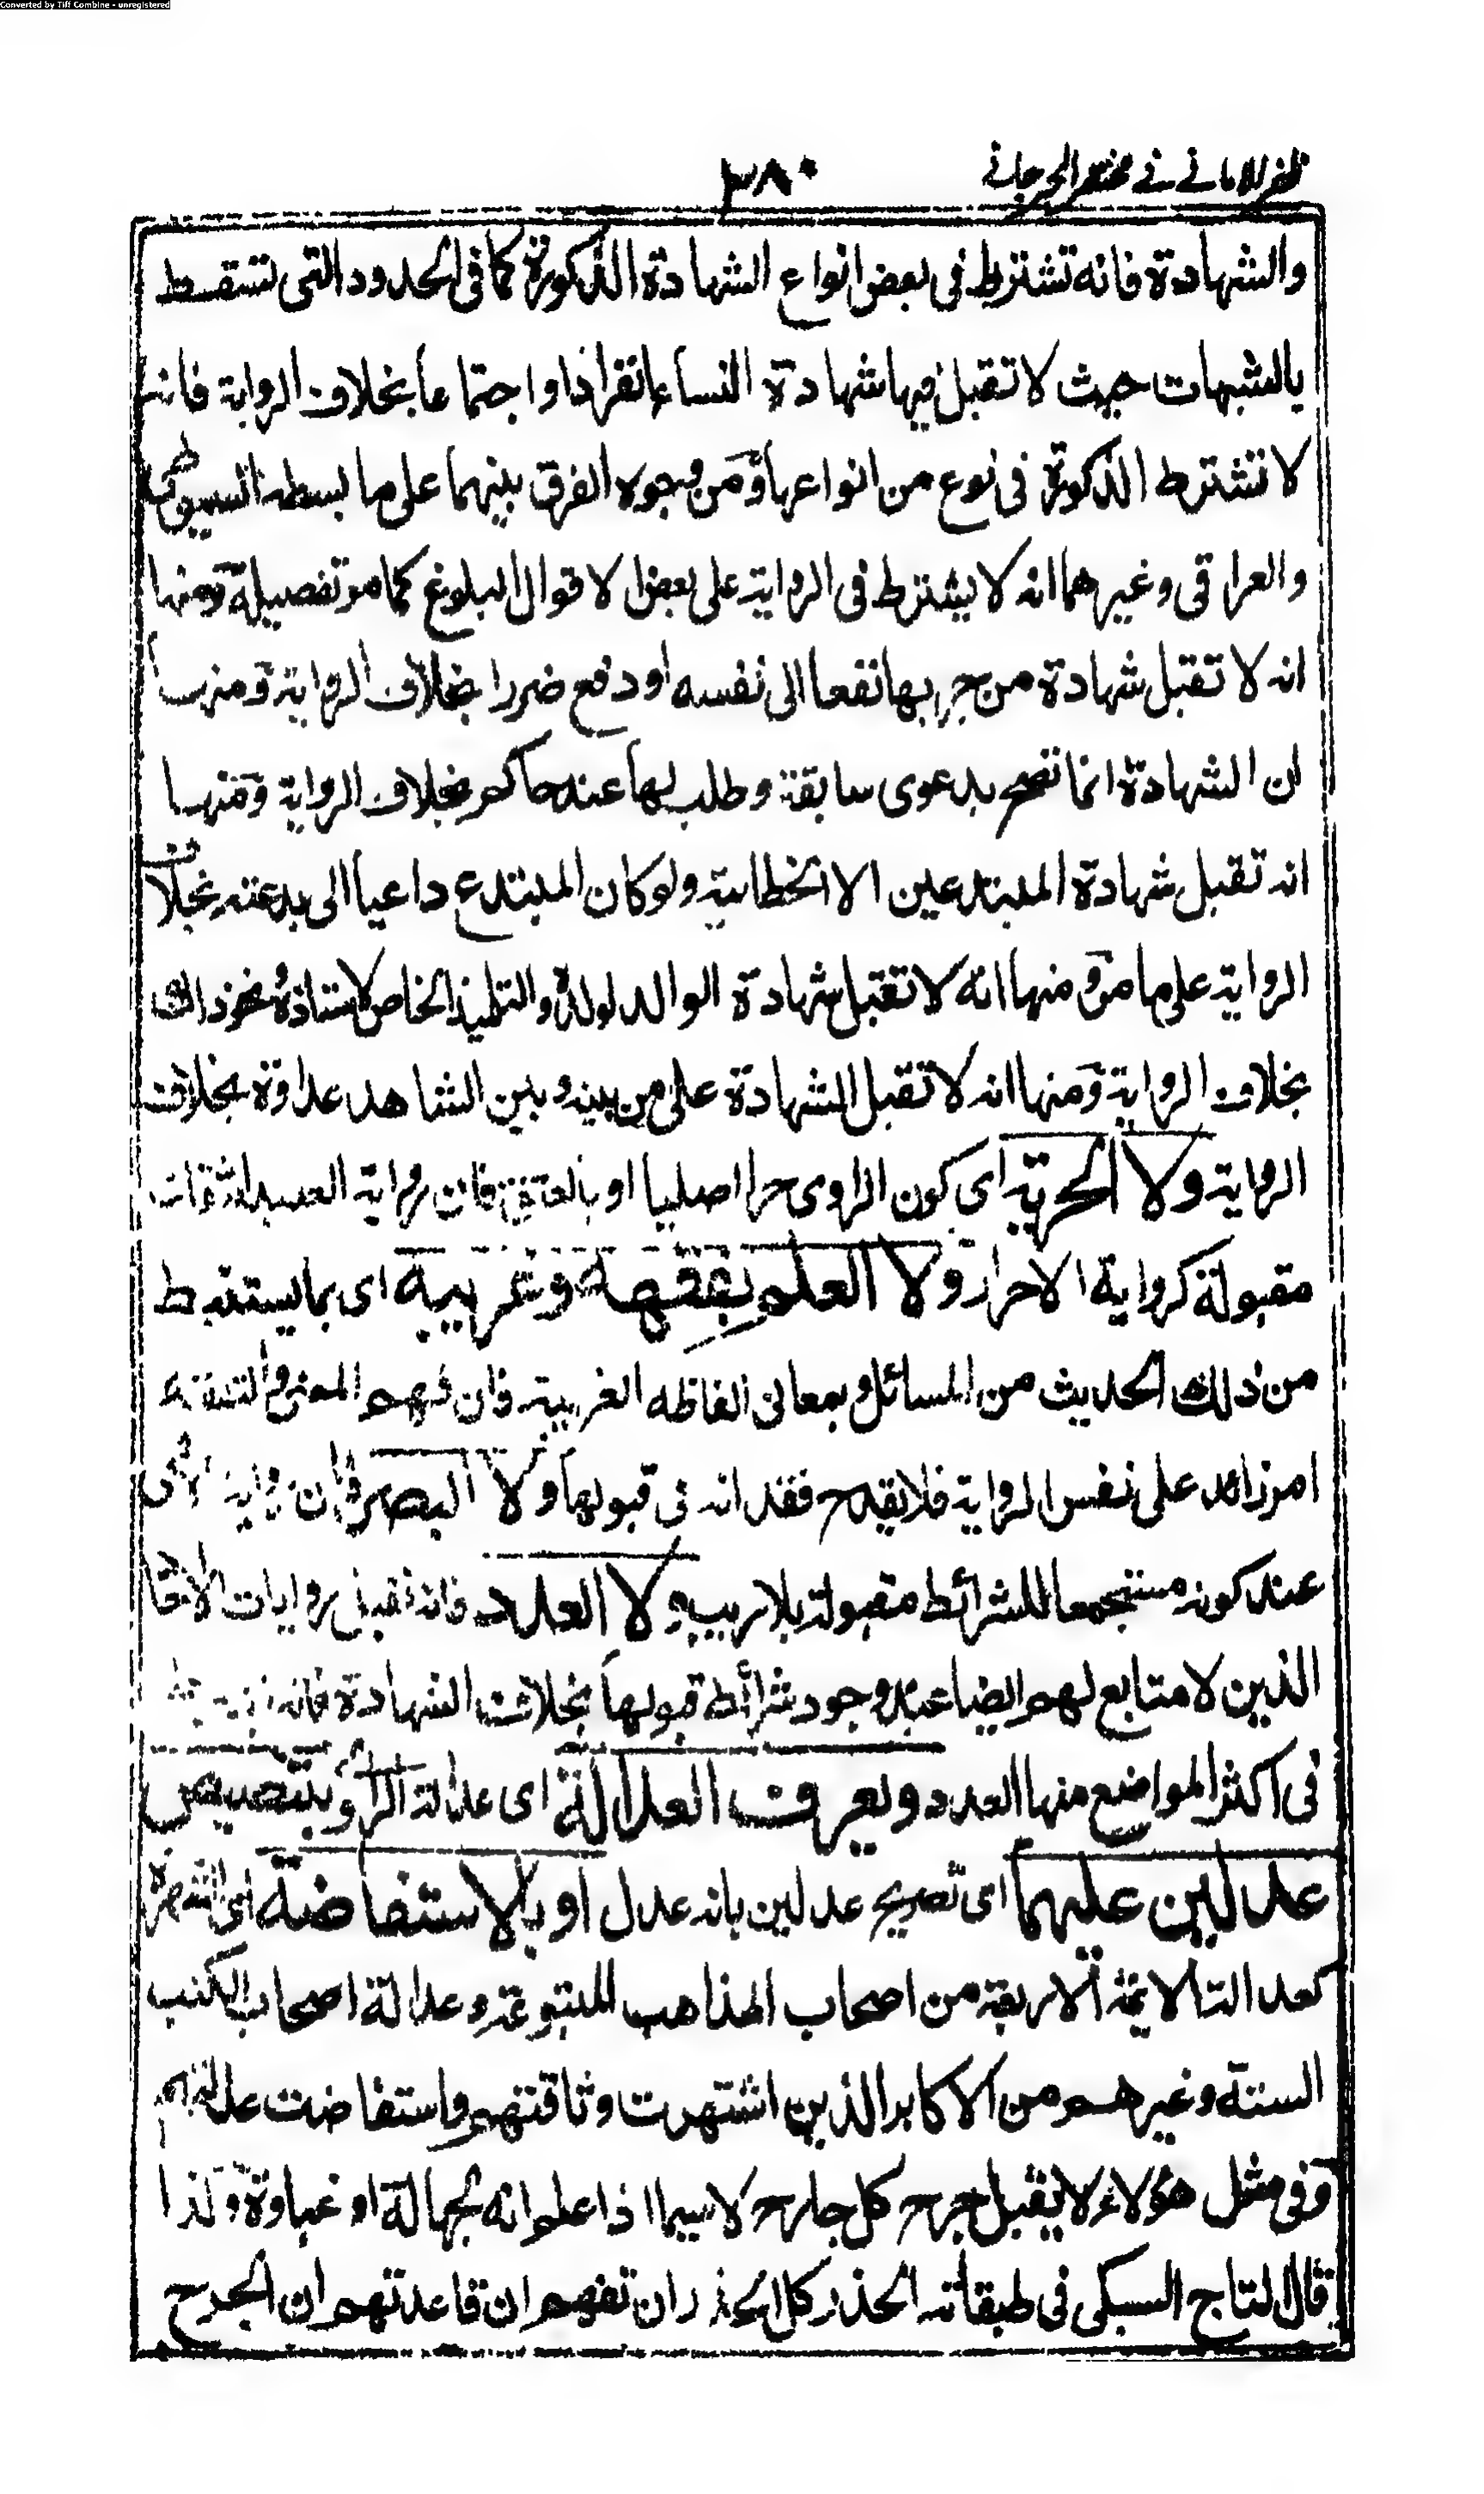 Converted by Tiff Combine - unregistered
ظفر الامانى فى مختصر الجرجانى ٣٨٠
والشهادة فانه تشترط فى بعض انواع الشهادة الذكورة كما فى الحدود التى تسقط
بالشبهات حيث لا تقبل فيها شهادة النساء انفرادا واجتماعا بخلاف الرواية فانه
لا تشترط الذكورة فى نوع من انواعها ومن وجوه الفرق بينهما على ما بسطه السيوطى
والعراقى وغيرهما انه لا يشترط فى الرواية على بعض الاقوال البلوغ كما مر تفصيله ومنها
انه لا تقبل شهادة من جر بها نفعا الى نفسه او دفع ضررا بخلاف الرواية ومنها
ان الشهادة انما تصح بدعوى سابقة وطلب لها عند حاكم بخلاف الرواية ومنها
انه تقبل شهادة المبتدعين الا الخطابية ولو كان المبتدع داعيا الى بدعته بخلاف
الرواية على ما مر ومنها انه لا تقبل شهادة الوالد لولده والتلميذ الخاص لاستاذه ونحو ذلك
بخلاف الرواية ومنها انه لا تقبل الشهادة على من بينه وبين الشاهد عداوة بخلاف
الرواية ولا الحرية اى كون الراوى حرا اصليا او بالعتق فان رواية العبيد الثقات
مقبولة كرواية الاحرار ولا العلم بفقهه وغريبه اى بما يستنبط
من ذلك الحديث من المسائل وبمعانى الفاظه الغريبة فان فهم المعنى والتفقه
امر زائد على نفس الرواية فلا يقدح فقدانه فى قبولها ولا البصر فان رواية الاعمى
عند كونه مستجمعا للشرائط مقبولة بلا ريب ولا العدد فانه تقبل روايات الآحاد
الذين لا متابع لهم ايضا عند وجود شرائط قبولها بخلاف الشهادة فانه
فى اكثر المواضع منها العدد ويعرف العدالة اى عدالة الراوى بتنصيص
عدلين عليهما اى تصريح عدلين بانه عدل او بالاستفاضة اى الشهرة
كعدالة الائمة الاربعة من اصحاب المذاهب المتبوعة وعدالة اصحاب الكتب
الستة وغيرهم من الاكابر الذين اشتهرت وثاقتهم واستفاضت عدالتهم
وفى مثل هؤلاء لا يقبل جرح كل جارح لا سيما اذا علم انه لجهالة او غباوة ولذا
قال التاج السبكى فى طبقاته الحذر كل الحذر ان تفهم ان قاعدتهم ان الجرح